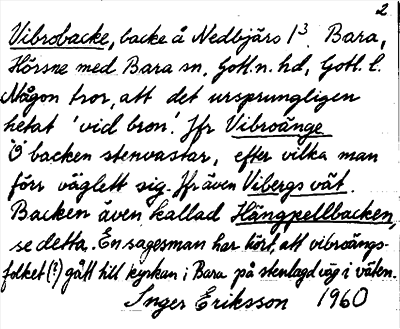 2
Vibrobacke, backe å Nedbjärs 1³. Bara,
Hörsne med Bara sn, Gotl. n. hd, Gotl. l.
Någon tror, att det ursprungligen
hetat 'vid bron'. Jfr Vibroänge
Å backen stenvastar, efter vilka man
förr väglett sig. Jfr även Vibergs vät.
Backen även kallad Hängpellbacken,
se detta. En sagesman har hört, att vibroängs-
folket (?) gått till kyrkan i Bara på stenlagd väg i väten.
Inger Eriksson 1960